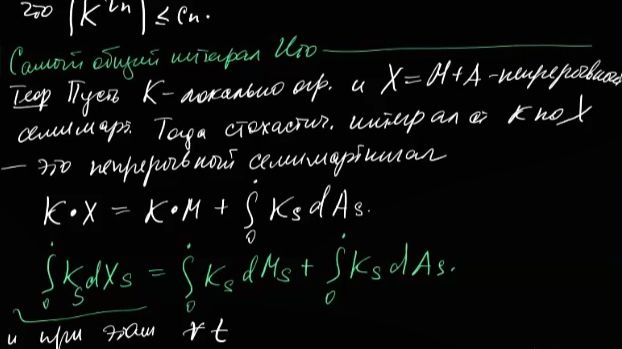 что |K^{τn}| ≤ Cn.
Самый общий интеграл Ито
Теор Пусть K - локально огр. и X = M + A - непрерывный
семимарт. Тогда стохастич. интеграл от K по X
— это непрерывный семимартингал
K • X = K • M + ∫₀˙ Ks dAs.
∫₀˙ Ks dXs = ∫₀˙ Ks dMs + ∫₀˙ Ks dAs.
и при этом ∀ t